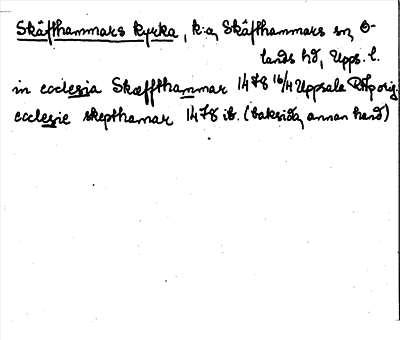 Skäfthammars kyrka, k:a, Skäfthammars sn, Ö-
lands hd, Upps. l.
in ecclesia Skæffthammar 1478 16/4 Uppsala RAp orig.
ecclesie skepthamar 1478 ib. (baksida, annan hand)